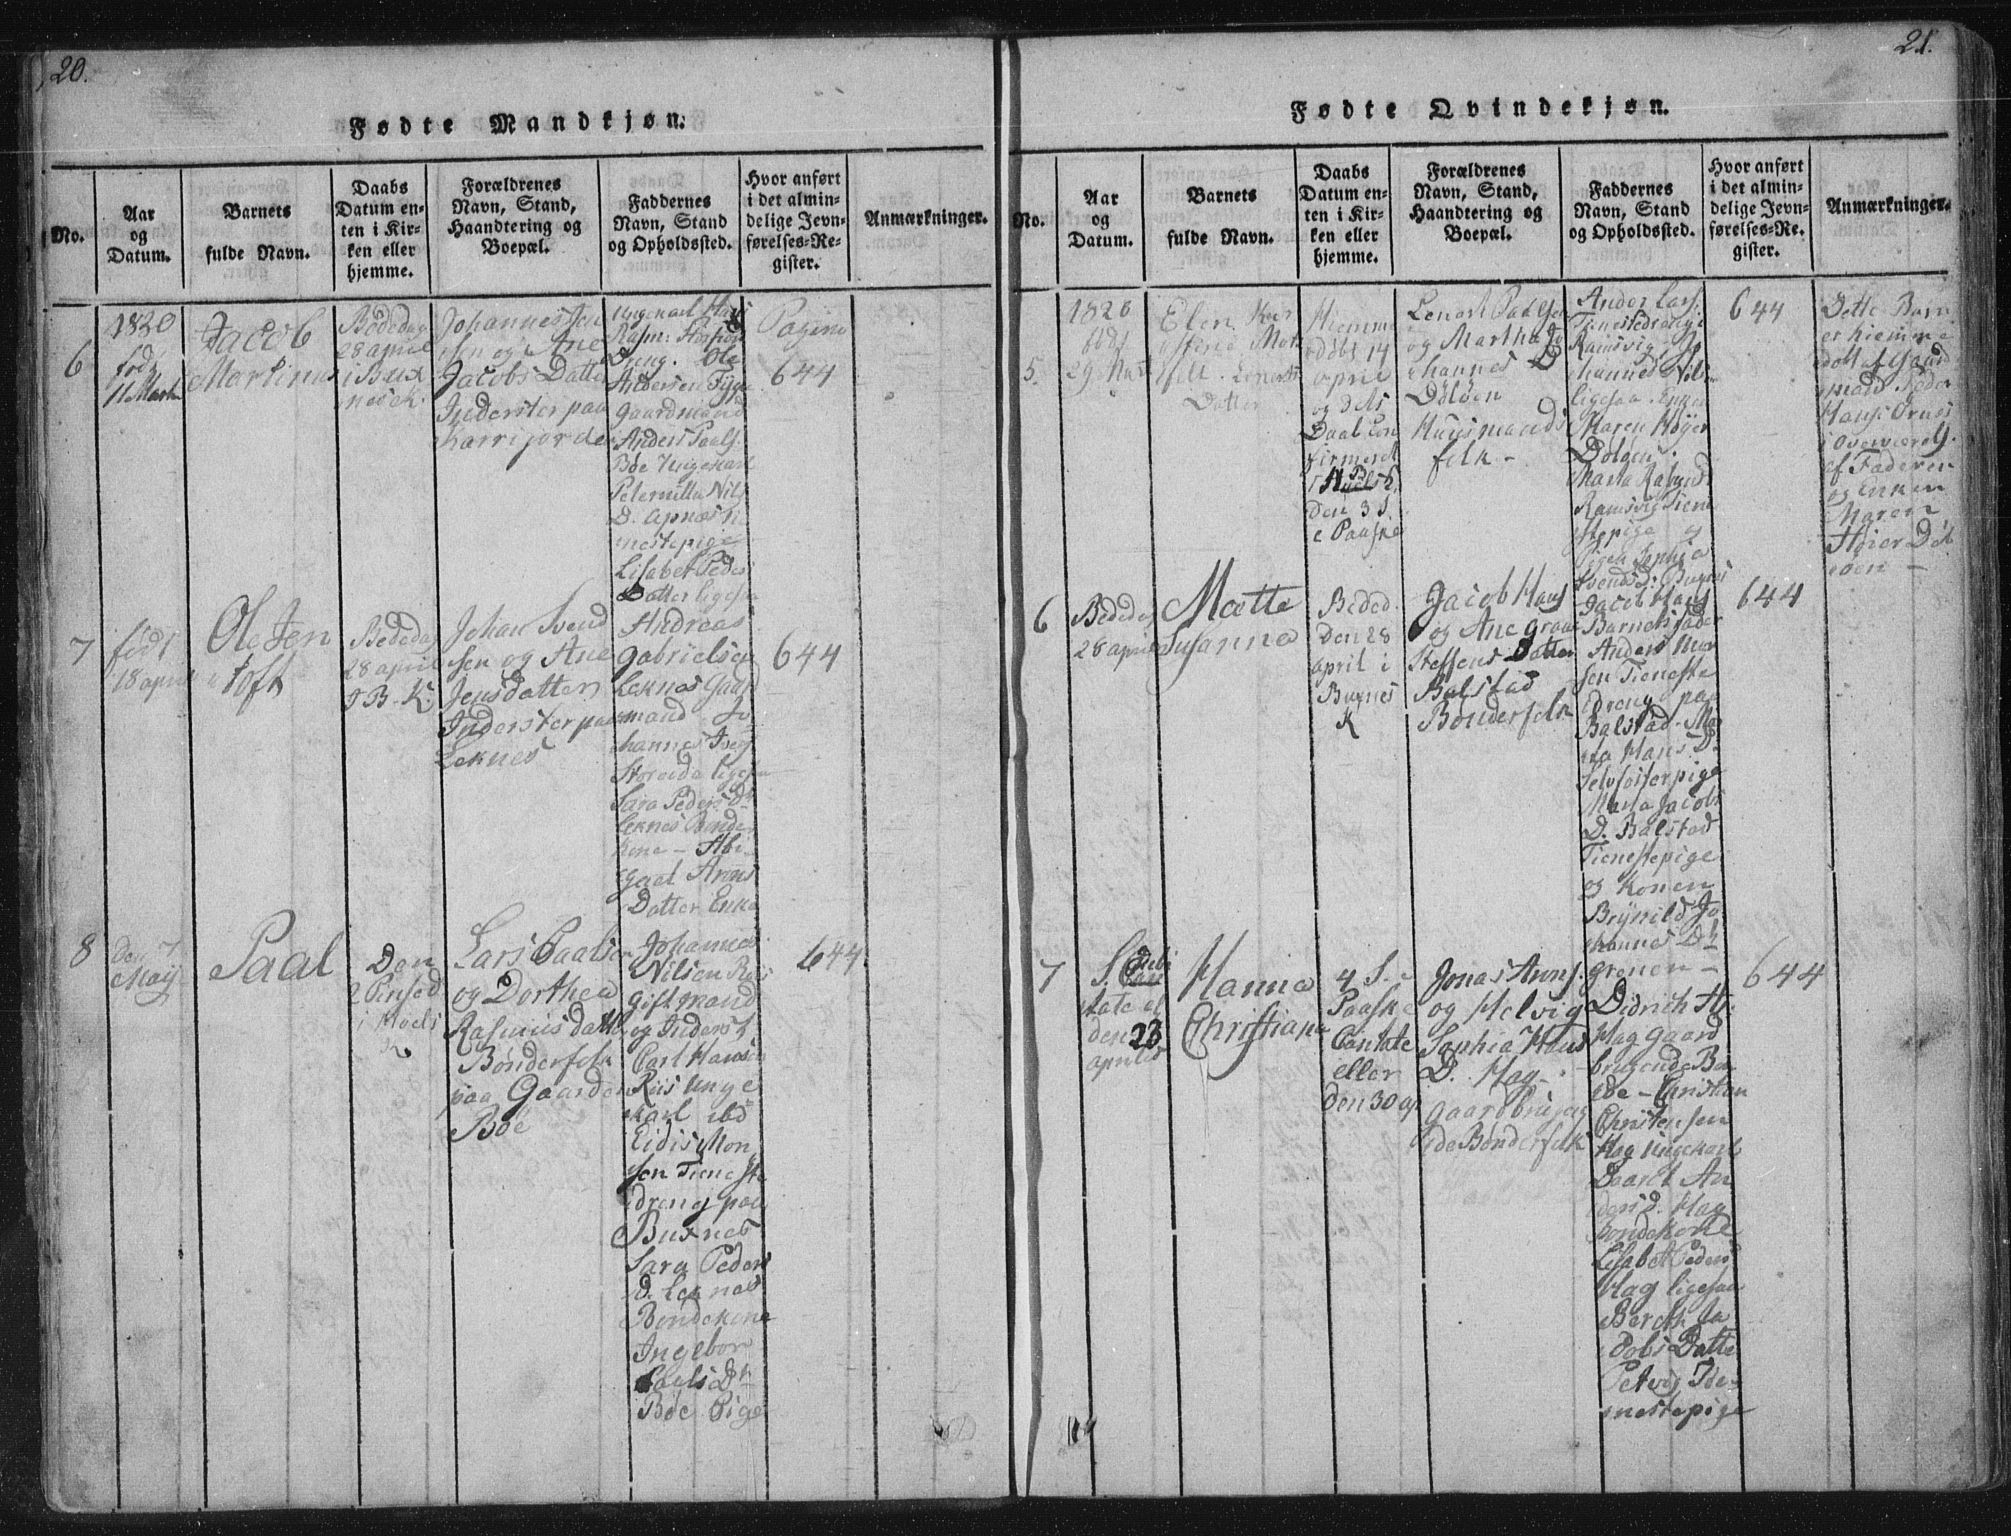 20.
Fødte Mandkjøn.
No.
Aar
og
Datum.
Barnets
fulde Navn.
Daabs
Datum en-
ten i Kir-
ken eller
hjemme.
Forældrenes
Navn, Stand,
Haandtering og
Boepæl.
Faddernes
Navn, Stand
og Opholdssted.
Hvor anført
i det almin-
delige Jevn-
førelses-Re-
gister.
Anmærkninger.
6
1820
født
11 Marti
Jacob
Martinus
Bededag
28 april
i Bux
nes K.
Johannes Jen
sen og Ane
Jacobs Datter
Inderster paa
Ungekarl Hans
Dreng. Ole
Andersen
gaardmand
Anders Paals.
Bøe Ungekarl
Peternilla Nils
D.
nestepige
Lisabet Peders
Datter ligesaa
Pagina
644
7
født
18 april
Ole Jen
toft
Bededag
28 april
i B. K.
Johan Svend
sen og Ane
Jensdatter
Inderster paa
Leknes
Andreas
Gabrielsen
Leknes Gaar
mand Jo
hannes
ligesaa
Sara Peders Dr
Leknes Bonde
kone - Abi
gael Arns
Datter Enke
644
8
Den 7.
May
Paal
Den
2 Pinsed
i Hoels
K
Lars Paalsen
og Dorthea
Rasmus datter
Bønderfolk
paa Gaarden
Bøe
Johannes
Nilsen Riis
Giftmand
og Inderst
Carl Hansen
Riis Unge
karl ibd
Eidis Mon
sen Tieneste
dreng paa
Buxnes
Sara Peders
D. Leknes
Bondekone
Ingebor
Paals Dr
Bøe Pige
644
21.
Fødte Qvindekjøn.
No.
Aar
og
Datum.
Barnets
fulde Navn.
Daabs
Datum en-
ten i Kir-
ken eller
hjemme.
Forældrenes
Navn, Stand,
Haandtering og
Boepæl.
Faddernes
Navn, Stand
og Opholdssted.
Hvor anført
i det almin-
delige Jevn-
førelses-Re-
gister.
Anmærkninger.
5.
1820
født
29 Mart
Elen
Lenerts
Datter
Hiemme
døbt 14
april
og dets
Daab Con
firmeret
i
den 3 S.
e Paaske
Lenert
og Martha Jo
hannes D
Døløen
Huusmands
folk -
Anders Lars.
Tienestedreng i
Ramsvig, Jo
hannes Nils
ligesaa. Enken
Maren Høyer
Døløen.
Maria Rasmus
Ramsvig Tiene
stepige og
Pigen Sophia
644
Dette Barn
er hiemme
døbt af Gaard
mand Peder
Hans
i Overværels.
af Faderen
og Enken
Maren
Høier Døl
øen -
6
Bededag
28 april
Mætte
Susanna
Beded.
den 28
april i
Buxnes
K
Jacob Hans
og Ane
Steffens Datter
Balstad
Bønderfolk
Jacob Hans
Barnets fader
Anders Mon
sen Tieneste
dreng paa
Balstad. Ma
ria Hans D.
Maria Jacobs
D. Balstad
Tienestepige
og Konen
Brynild Jo
hannes Dr
grenen -
644
7
S. Can
tate el
den 23
april
Hanna
Christiana
4 S. e
Paaske
Cantate
eller
den 30 ap
Jonas Arns.
og Helvig
Sophia Hans
D. Hag
gaardbrug
ede Bønderfolk
Didrich
Hag Gaard
brugende
Christian
Christensen
Hag Ungekarl
An
ders D. Hag
bondekone
Lisabet Peders
Hag ligesaa
Bereth Ja
cobs Datte
Petvig Tie
nestepige
644